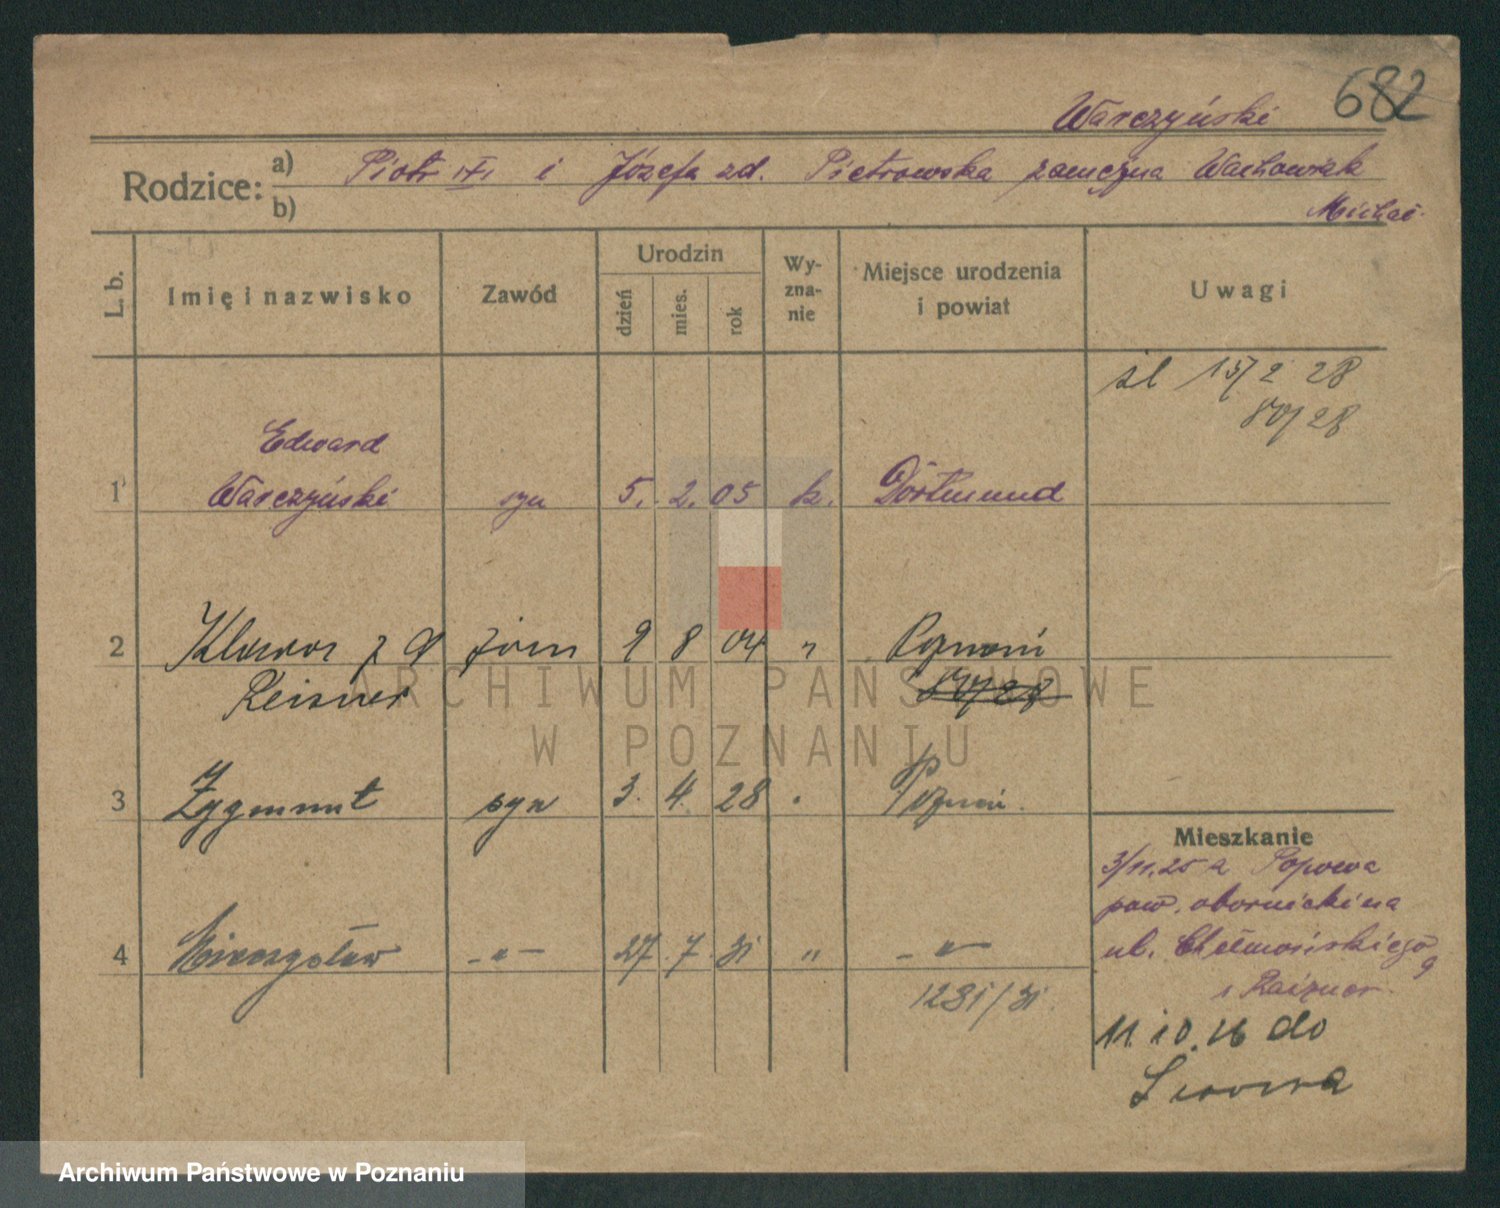 682
Warczyński
Rodzice: a) Piotr i Józefa zd. Pietrowska zamężna Wachowiak
b) Michał
L. b. Imię i nazwisko Zawód Urodzin dzień mies. rok Wyznanie Miejsce urodzenia i powiat Uwagi
śl 15/2 28
80/28
Edward
1 Warczyński syn 5. 2. 05 k. Dortmund
2 z d żona 9 8 04 " Poznań
Reisner
3 Zygmunt syn 3. 4. 28 Poznań
Mieszkanie
3/11.25 z Popowa
pow. obornicki na
ul. Chełmońskiego 9
4 Mieczysław -"- 27 7 31 " -"-
1231/31.
11.10.26 do
ARCHIWUM PAŃSTWOWE
W POZNANIU
Archiwum Państwowe w Poznaniu